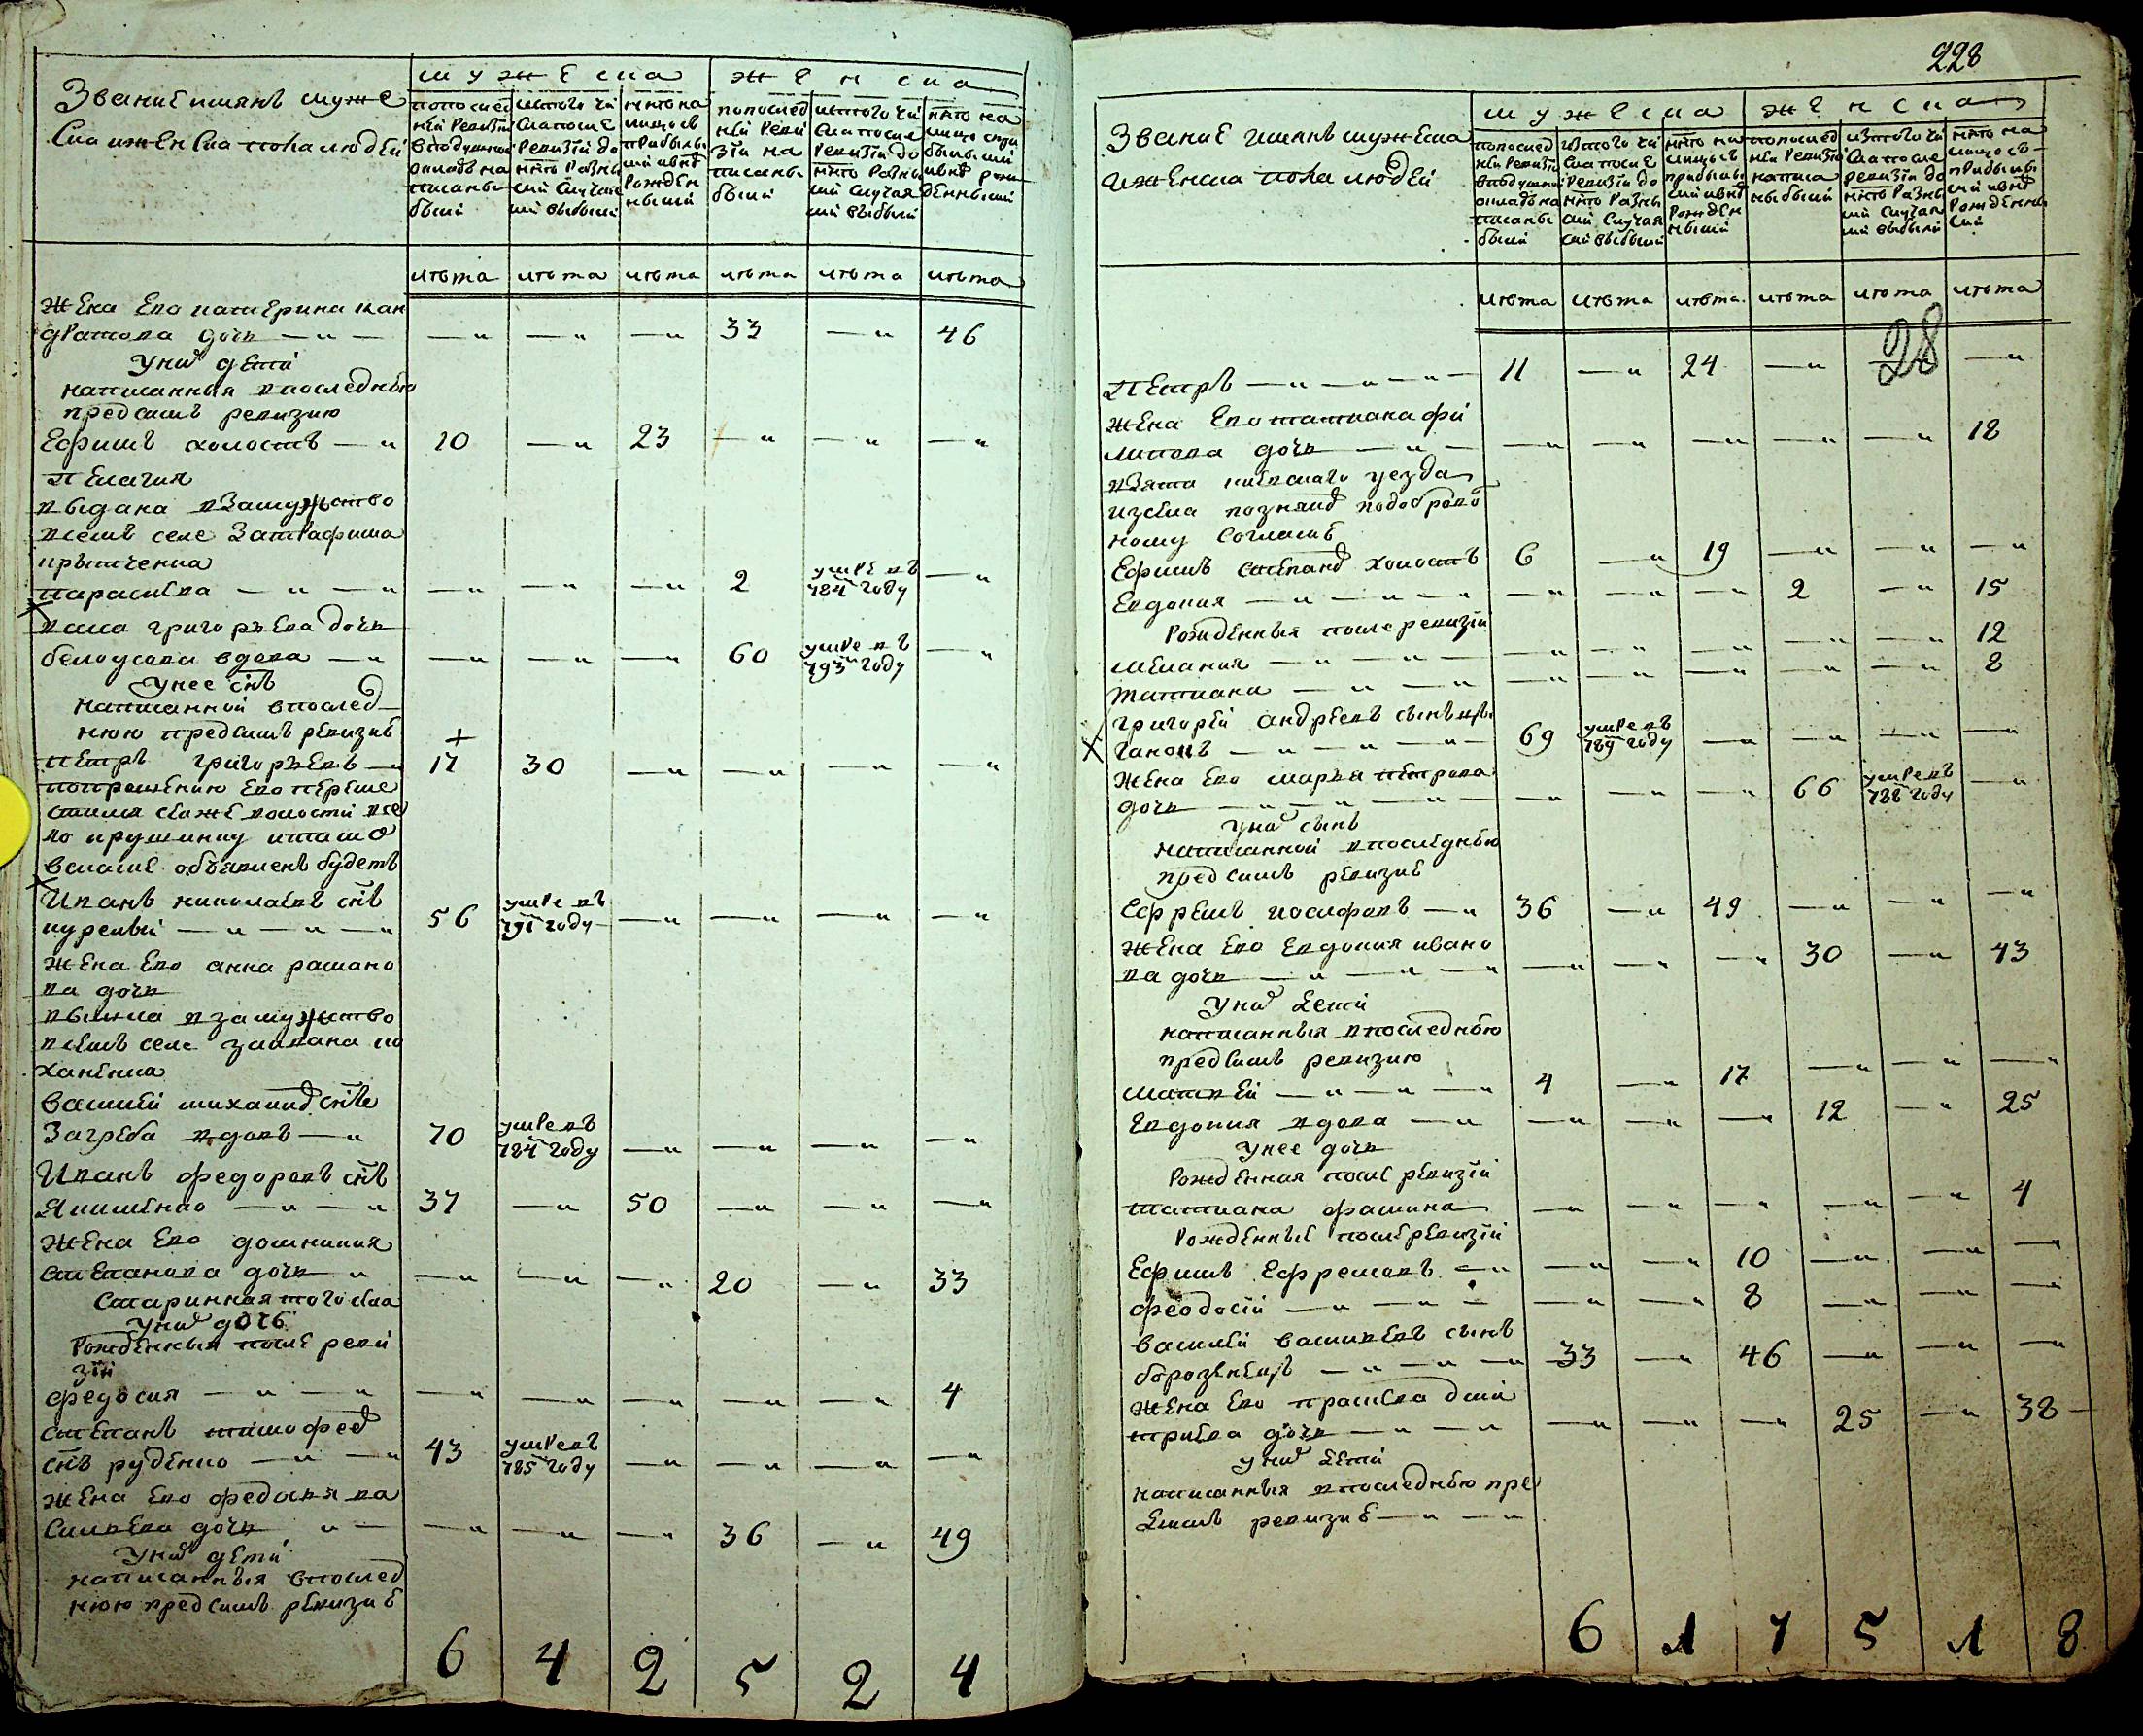 Звание имянъ муже
ска и женска пола людей
мужеска
женска
попослед
ней ревизiи
в подушной
окладъ на
писаны
были
изтого чи
сла после
ревизiи до
нто разны
ми случая
ми выбыли
нто на
лицо съ
прибылы
ми и внд
рожден
ными
попослед
ней реви
зiи на
писаны
были
изтого чи
сла после
ревизiи до
нто разны
ми случая
ми выбыли
нто на
лицо съ при
былыми
и внд рож
денными
лѣта лѣта лѣта лѣта лѣта лѣта
жена ево катерина кан
дратова дочь — 33 — 46
у них дети
написанныя в последнюю
пред симъ ревизию
Ефимъ холостъ — 10 — 23 — — —
Пелагия
выдана взамужство
в семъ селе за трафима
параскева — — — 2 умре въ 784м году —
васса григорьева дочь
белоусова вдова — — — 60 умре въ 793м году —
у нее снъ
написанной в послед
нюю пред симъ ревизию
петръ григорьевъ — 17 30 — — — —
попрошению ево переше
волости в се
ло крушинку и тамо
в сказке объявленъ будетъ
Иванъ николаевъ снъ
курелый — 56 умре въ 791м году — — — —
жена ево анна рамано
ва дочь
вышла в замужство
в семъ селе за ивана ко
ханенка
василей михайлов снъ
Загреба вдовъ — 70 умре въ 784м году — — — —
Иванъ федоровъ снъ
Якименко — 37 — 50 — — —
жена ево домникия
степанова дочь — — — 20 — 33
старинная того села
у них дочь
рожденныя после реви
зiи
федосия — — — — — 4
степанъ тимофеев
снъ руденко — 43 умре въ 785м году — — — —
жена ево федосья ва
сильева дочь — — — 36 — 49
у них дети
написанныя в послед
нюю пред симъ ревизию
6 4 2 5 2 4
228
Звание имянъ мужеска
и женска пола людей
мужеска
женска
попослед
ней ревизiи
в подушной
окладъ на
писаны
были
изтого чи
сла после
ревизiи до
нто разны
ми случая
ми выбыли
нто на
лицо съ
прибылы
ми и внд
рожден
ными
попослед
ней ревизiи
написа
ны были
изтого чи
сла после
ревизiи до
нто разны
ми случая
ми выбыли
нто на
лицо съ
прибылы
ми и внд
рожденны
ми
лѣта лѣта лѣта лѣта лѣта лѣта
28
Петръ — 11 — 24 — — —
жена ево татиана фи
липова дочь — — — — — 18
взята киевскаго уезда
изсела позняков подоброво
ному согласию
Ефимъ степанов холостъ 6 — 19 — — —
Евдокия — — — 2 — 15
рожденныя после ревизiи
мелания — — — — — 12
татиана — — — — — 8
григорей андреевъ сынъ
ганонъ — 69 умре въ 789м году — — — —
жена ево марья петрова
дочь — — — 66 умре въ 788м году —
у них сынъ
написанной в последнюю
пред симъ ревизию
Ефремъ иосифовъ — 36 — 49 — — —
жена ево евдокия ивано
ва дочь — — — 30 — 43
у них дети
написанныя в последнюю
пред симъ ревизию
матвей — 4 — 17 — — —
Евдокия вдова — — — 12 — 25
у нее дочь
рожденная после ревизiи
татиана фомина — — — — — 4
рожденные после ревизiи
Ефимъ Ефремовъ — — 10 — — —
феодосiй — — 8 — — —
василей васильевъ сынъ
борозенецъ — 33 — 46 — — —
жена ево прасковья дми
триева дочь — — — 25 — 38
у них дети
написанныя в последнюю пре
д симъ ревизию —
6 1 7 5 1 8